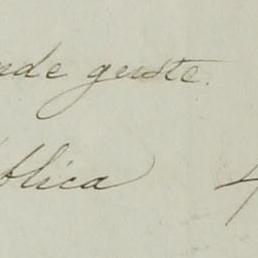 nde geeste.
blica